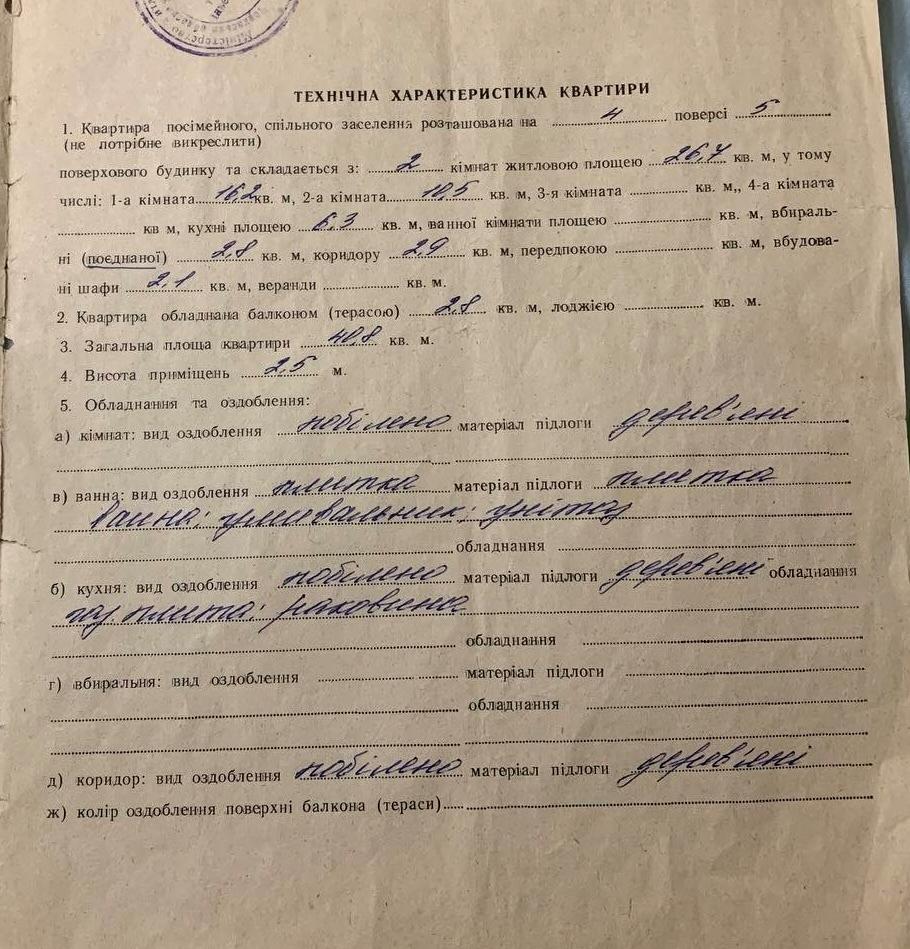 Міністерство
ТЕХНІЧНА ХАРАКТЕРИСТИКА КВАРТИРИ
1. Квартира посімейного, спільного заселення розташована на 4 поверсі 5
(не потрібне викреслити)
поверхового будинку та складається з: 2 кімнат житловою площею 26,7 кв. м, у тому
числі: 1-а кімната 16,2 кв. м, 2-а кімната 10,5 кв. м, 3-я кімната кв. м,, 4-а кімната
кв м, кухні площею 6,3 кв. м, ванної кімнати площею кв. м, вбираль-
ні (поєднаної) 2,8 кв. м, коридору 2,9 кв. м, передпокою кв. м, вбудова-
ні шафи 2,1 кв. м, веранди кв. м.
2. Квартира обладнана балконом (терасою) 2,8 кв. м, лоджією кв. м.
3. Загальна площа квартири 40,8 кв. м.
4. Висота приміщень 2,5 м.
5. Обладнання та оздоблення:
а) кімнат: вид оздоблення побілено матеріал підлоги дерев'яні
в) ванна: вид оздоблення плитка матеріал підлоги плитка
Ванна; умивальник; унітаз
обладнання
б) кухня: вид оздоблення побілено матеріал підлоги дерев'яні обладнання
газ. плита; раковина
обладнання
г) вбиральня: вид оздоблення матеріал підлоги
обладнання
д) коридор: вид оздоблення побілено матеріал підлоги дерев'яні
ж) колір оздоблення поверхні балкона (тераси)